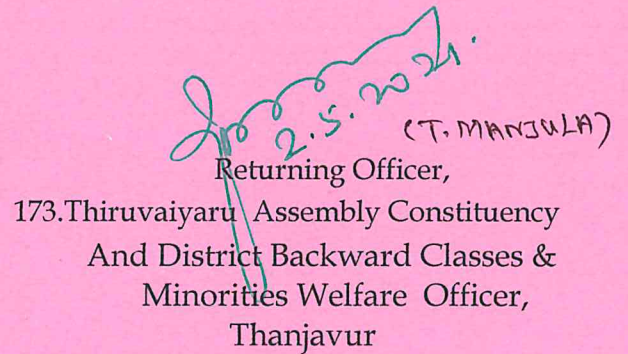 2.5.2021.
(T. MANJULA)
Returning Officer,
173.Thiruvaiyaru Assembly Constituency
And District Backward Classes &
Minorities Welfare Officer,
Thanjavur